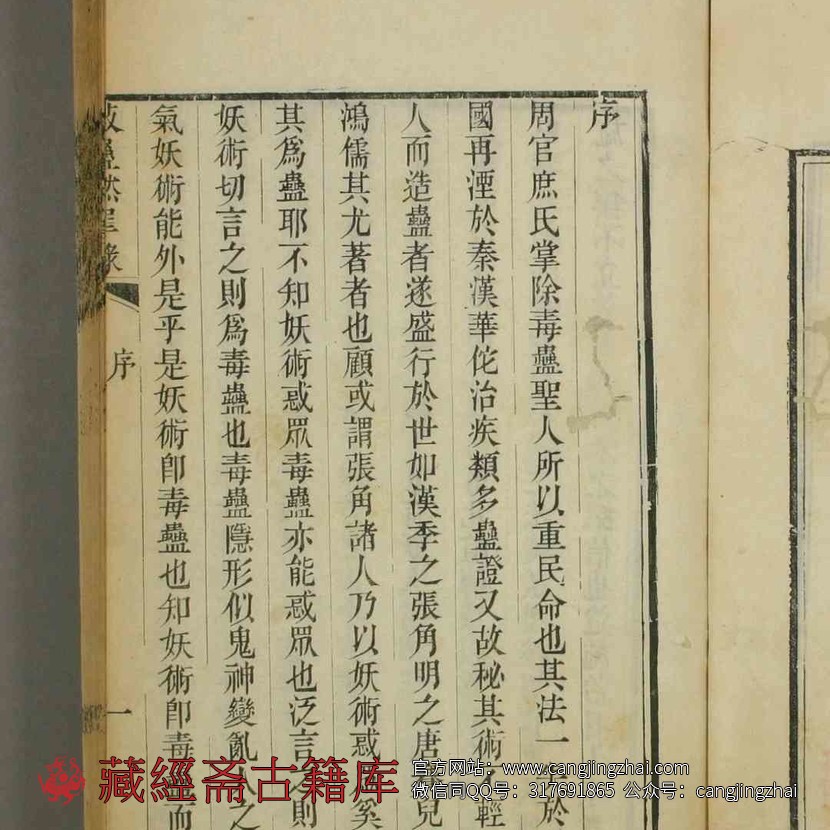 序
周官庶氏掌除毒蠱聖人所以重民命也其法一於
國再湮於秦漢華佗治疾類多蠱證又故秘其術輕
人而造蠱者遂盛行於世如漢季之張角明之唐兒
鴻儒其尤著者也顧或謂張角諸人乃以妖術惑奚
其爲蠱耶不知妖術惑眾毒蠱亦能惑眾也泛言則
妖術切言之則爲毒蠱也毒蠱隱形似鬼神變亂之
氣妖術能外是乎是妖術卽毒蠱也知妖術卽毒而
蠱
序
一
藏經斋古籍库
官方网站：www.cangjingzhai.com
微信同QQ号：317691865 公众号：cangjingzhai